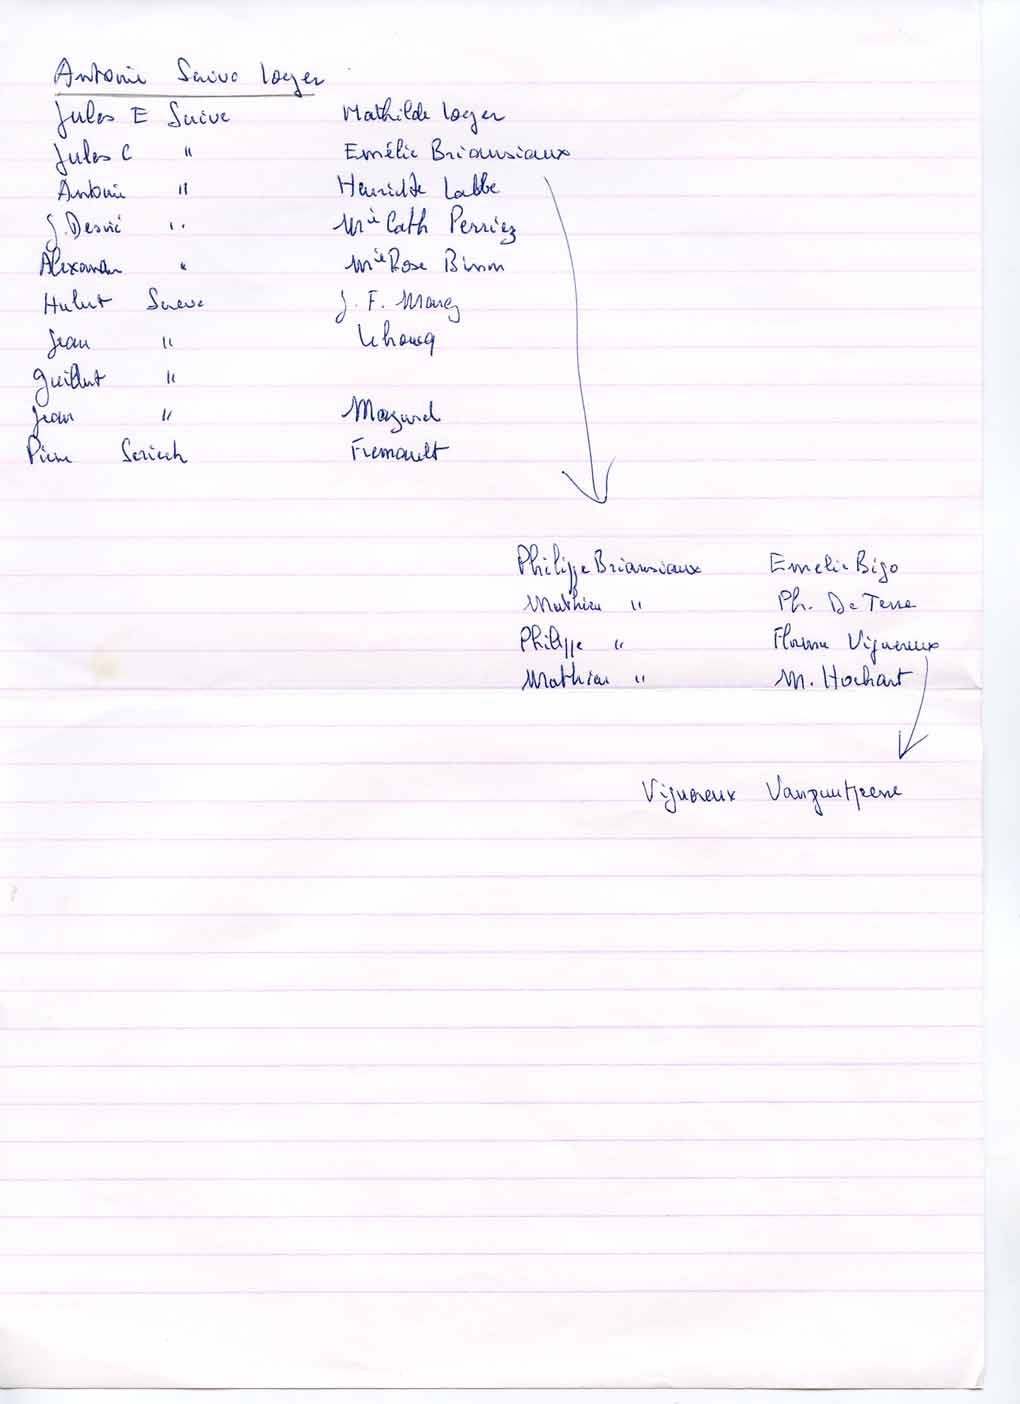 Antoine Scrive Loyer
Jules E Scrive Mathilde Loyer
Jules C " Emélie Briansiaux
Antoine " Henriette Labbe
J. Desiré " Mie Cath Perriez
Alexandre " Mie Rose Binon
Hubert Scrive J. F.
Jean "
Guilbert "
Jean " Mazurel
Pierre Fremault
Philippe Briansiaux Emelie Bigo
Mathieu " Ph. De Terre
Philippe " Florine Vignereux
Mathieu " M. Hochart
Vignereux